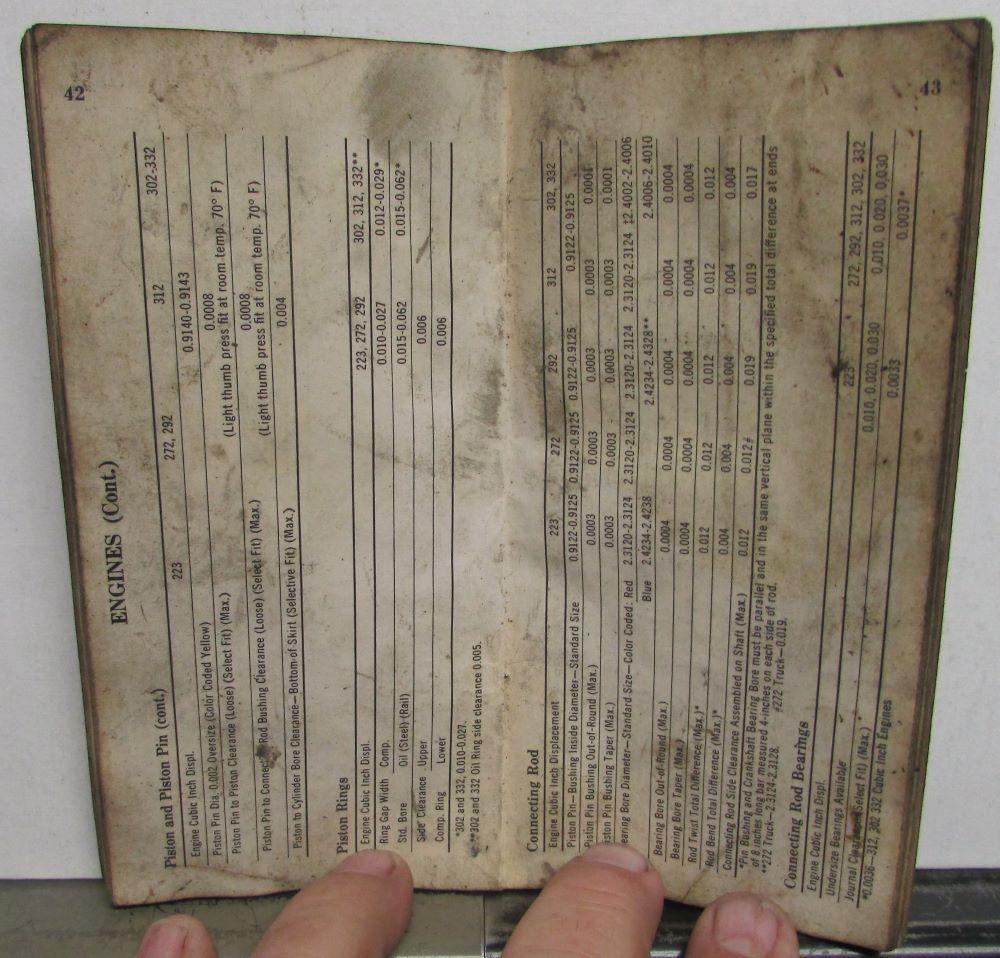 42
ENGINES (Cont.)
Piston and Piston Pin (cont.)
Engine Cubic Inch Displ. 223 272, 292 312 302-332
Piston Pin Dia. 0.002 Oversize (Color Coded Yellow) 0.9140-0.9143
Piston Pin to Piston Clearance (Loose) (Select Fit) (Max.) 0.0008
(Light thumb press fit at room temp. 70° F)
Piston Pin to Connect. Rod Bushing Clearance (Loose) (Select Fit) (Max.) 0.0008
(Light thumb press fit at room temp. 70° F)
Piston to Cylinder Bore Clearance—Bottom of Skirt (Selective Fit) (Max.) 0.004
Piston Rings
Engine Cubic Inch Displ. 223, 272, 292 302, 312, 332**
Ring Gap Width Comp. 0.010-0.027 0.012-0.029*
Std. Bore Oil (Steel) (Rail) 0.015-0.062 0.015-0.062*
Side Clearance Upper 0.006
Comp. Ring Lower 0.006
*302 and 332, 0.010-0.027.
**302 and 332 Oil Ring side clearance 0.005.
43
Connecting Rod
Engine Cubic Inch Displacement 223 272 292 312 302, 332
Piston Pin—Bushing Inside Diameter—Standard Size 0.9122-0.9125 0.9122-0.9125 0.9122-0.9125 0.9122-0.9125
Piston Pin Bushing Out-of-Round (Max.) 0.0003 0.0003 0.0003 0.0003 0.0001
Piston Pin Bushing Taper (Max.) 0.0003 0.0003 0.0003 0.0003 0.0001
Bearing Bore Diameter—Standard Size—Color Coded: Red 2.3120-2.3124 2.3120-2.3124 2.3120-2.3124 2.3120-2.3124 ‡2.4002-2.4006
Blue 2.4234-2.4238 2.4234-2.4328** 2.4006-2.4010
Bearing Bore Out-of-Round (Max.) 0.0004 0.0004 0.0004 0.0004 0.0004
Bearing Bore Taper (Max.) 0.0004 0.0004 0.0004 0.0004 0.0004
Rod Twist Total Difference (Max.)* 0.012 0.012 0.012 0.012 0.012
Rod Bend Total Difference (Max.)* 0.004 0.004 0.004 0.004 0.004
Connecting Rod Side Clearance Assembled on Shaft (Max.) 0.012 0.012# 0.019 0.019 0.017
*Pin Bushing and Crankshaft Bearing Bore must be parallel and in the same vertical plane within the specified total difference at ends
of 8 inches long bar measured 4-inches on each side of rod.
**272 Truck—2.3124-2.3128. #272 Truck—0.019.
Connecting Rod Bearings
Engine Cubic Inch Displ. 223 272, 292, 312, 302, 332
Undersize Bearings Available 0.010, 0.020, 0.030 0.010, 0.020, 0.030
Journal Clearance (Select Fit) (Max.) 0.0033 0.0037*
*0.0036—312, 302 332 Cubic Inch Engines